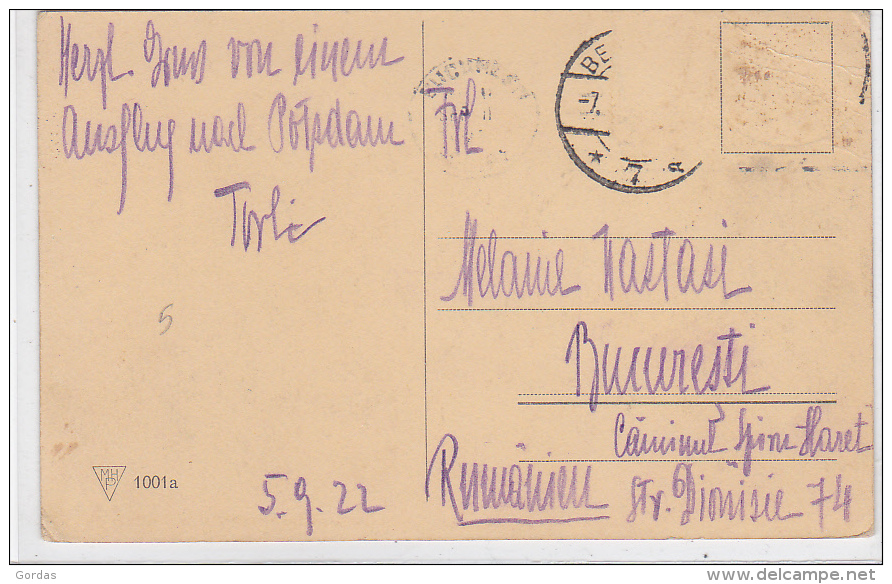 Herzl. Gruss von einem
Ausflug nach Potsdam
5
MH
P
1001a
5.9.22
BUCURESTI
BE
-7.
* IV a
Frl.
Melanie Nastasi
București
Căminul Spiru Haret
Str. Dionisie 74
Rumänien
Gordas
www.delcampe.net